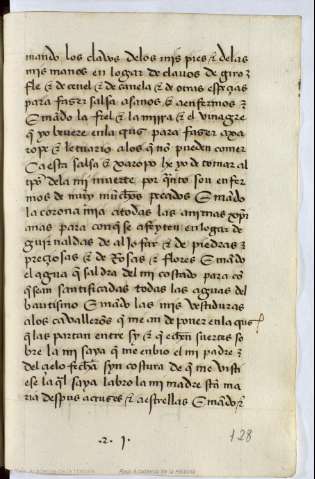 mando los clavos delos mis pies ⁊ delas
mis manos en logar de clavos de giro
fle ⁊ de de canela ⁊ de otras espeçias
para faser salsa asanos ⁊ aenfermos ⁊
Emãdo la fiel ⁊ la mirra ⁊ el vinagre
q̃ yo bevere enla qus para faser axa
rope ⁊ letuario alos q̃ nõ pueden comer
Ca esta salsa ⁊ xarope he yo de tomar al
tpõ dela mi muerte por q̃nto son enfer
mos de muy muchos pecados Emãdo
la corona mia atodas las animas xpĩ
anas para con q̃ se afeyten en logar de
guirnaldas de aljofar ⁊ de piedras
preçiosas ⁊ de Rosas ⁊ flores Emãdo
el agua q̃ saldra del mi costado para cõ
q̃ sean santificadas todas las aguas del
bautismo Emãdo las mis vestiduras
alos cavalleros q̃ me an de poner enla qus
q̃ las partan entre sy ⁊ q̃ echen suertes so
bre la mi saya q̃ me enbio el mi padre
del çielo fecha syn costura de q̃ me visti
ese la q̃l saya labro la mi madre stã ma
ria despus acruzes ⁊ aestrellas Emãdo
.2. j.
128
Real Academia de la Historia